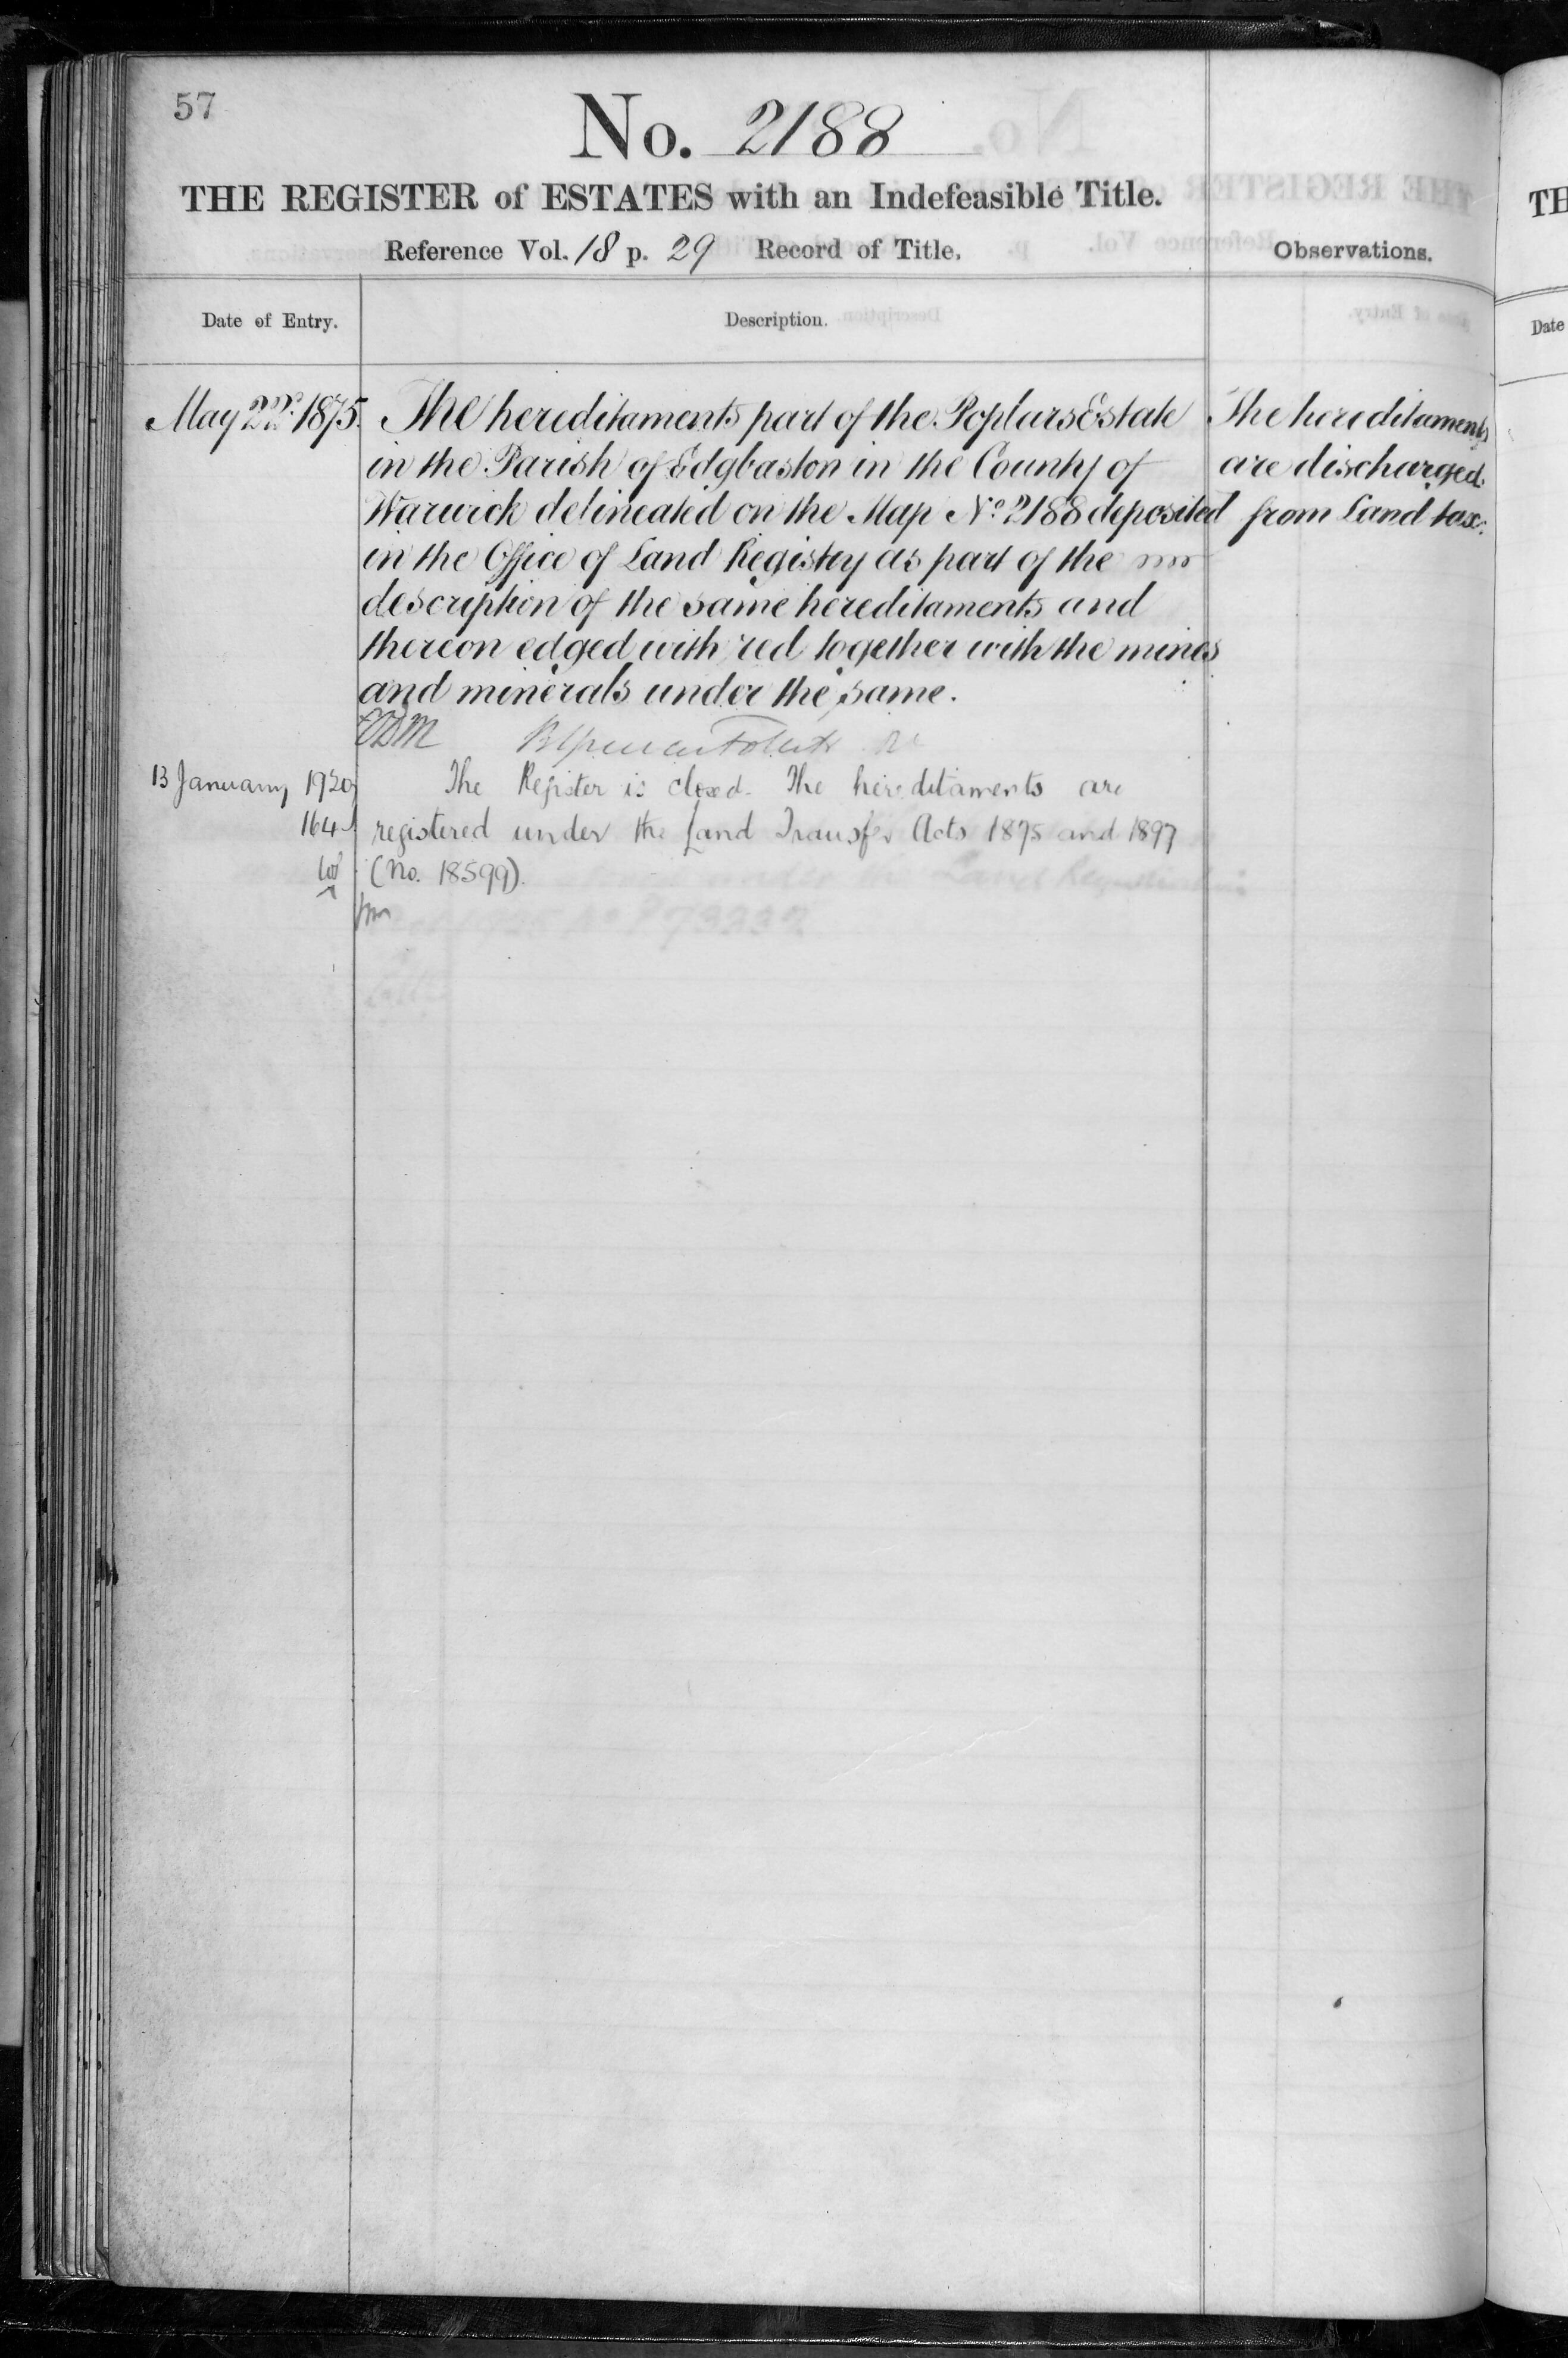 57
No. 2188
THE REGISTER of ESTATES with an Indefeasible Title.
Reference Vol. 18 p. 29 Record of Title.
Observations.
Date of Entry.
Description.
May 22nd. 1875.
The hereditaments part of the Poplars Estate
in the Parish of Edgbaston in the County of
Warwick delineated on the Map No. 2188 deposited
in the Office of Land Registry as part of the
description of the same hereditaments and
thereon edged with red together with the mines
and minerals under the same.
The hereditaments
are discharged
from Land tax.
13 January 1920
The Register is closed. The hereditaments are
registered under the Land Transfer Acts 1875 and 1897
(No. 18599).
TH
Date